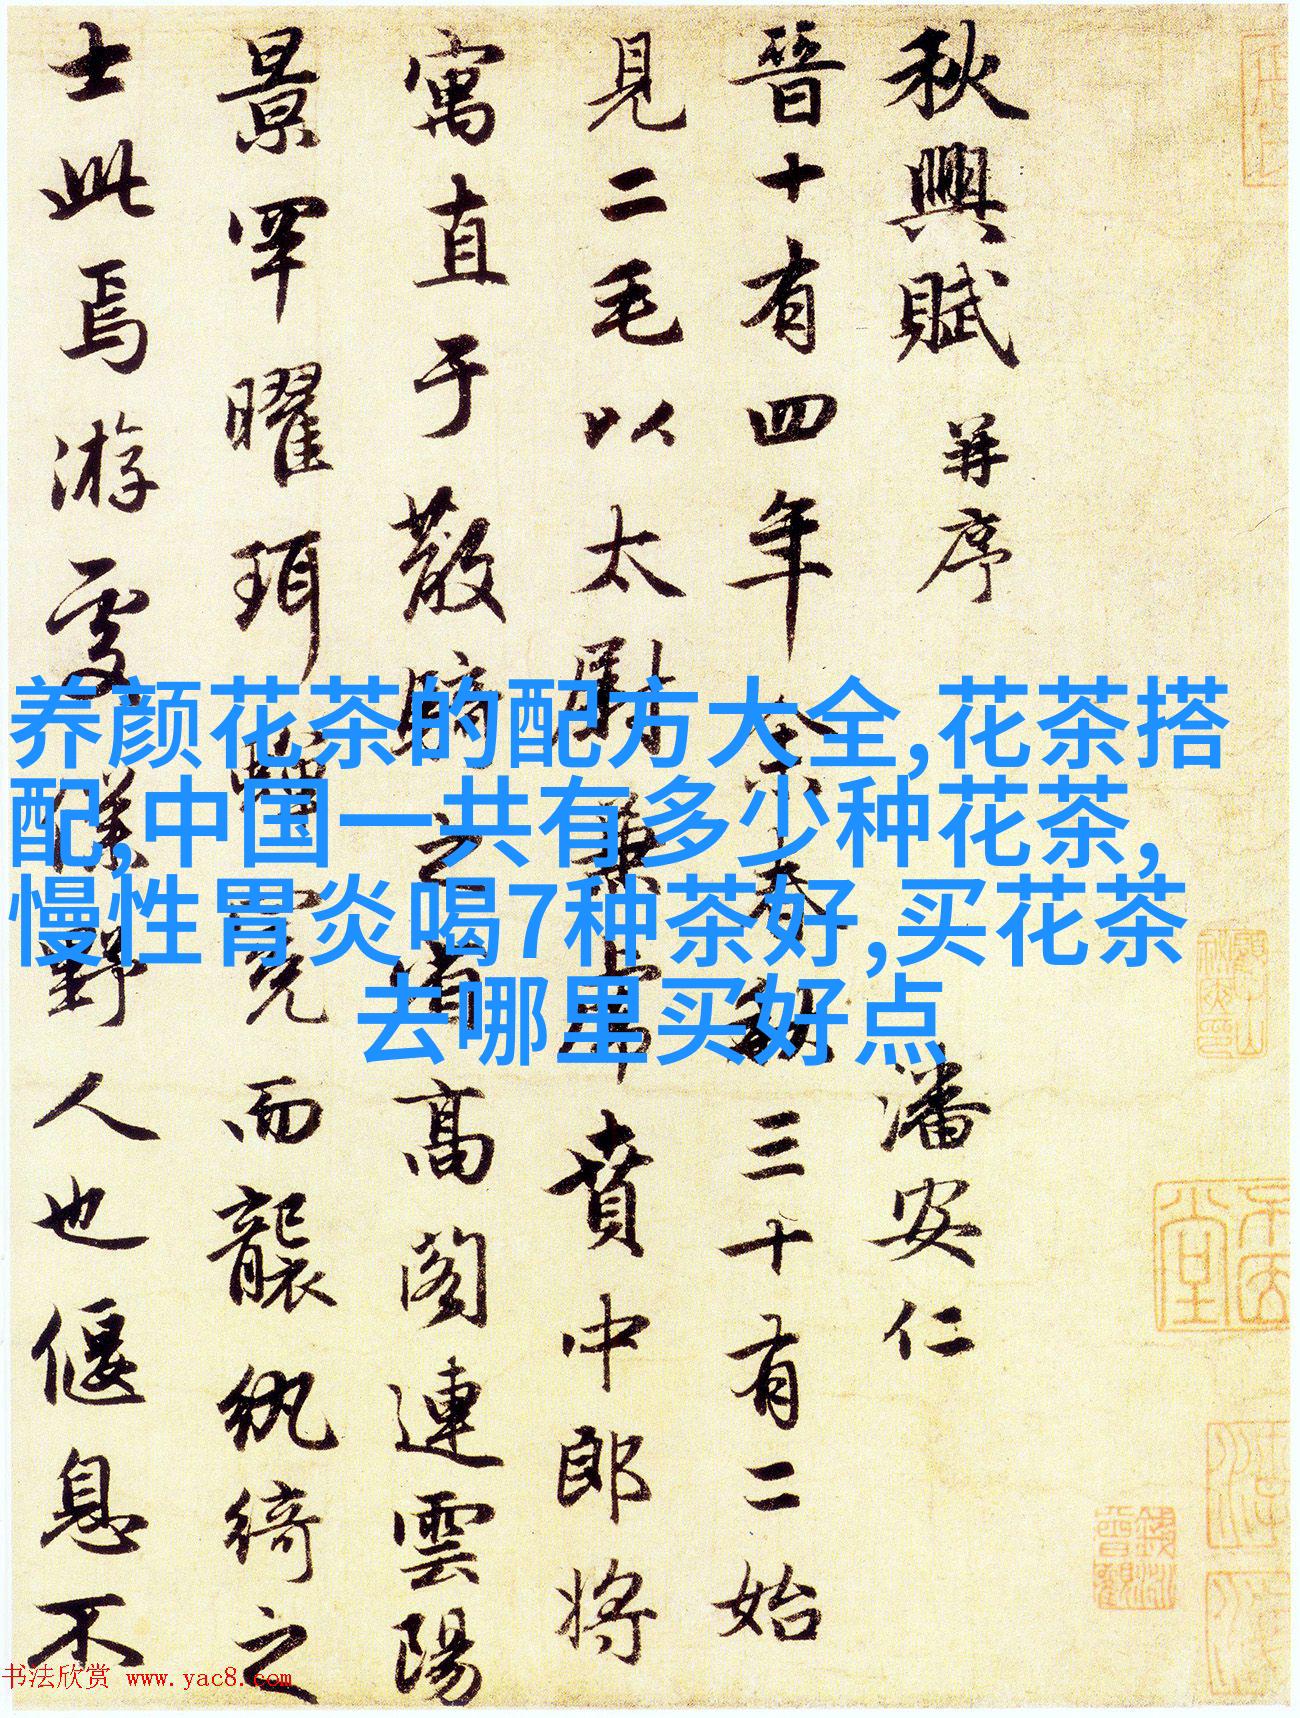 秋興賦 并序 潘安仁
晉十有四年余春秋三十有二始
見二毛以太尉掾兼虎賁中郎將
寓直于散騎之省高閣連雲陽
景罕曜珥蟬冕而襲紈綺之
士此焉游處僕野人也偃息不
养颜花茶的配方大全,花茶搭
配,中国一共有多少种花茶,
慢性胃炎喝7种茶好,买花茶
去哪里买好点
书法欣赏 www.yac8.com